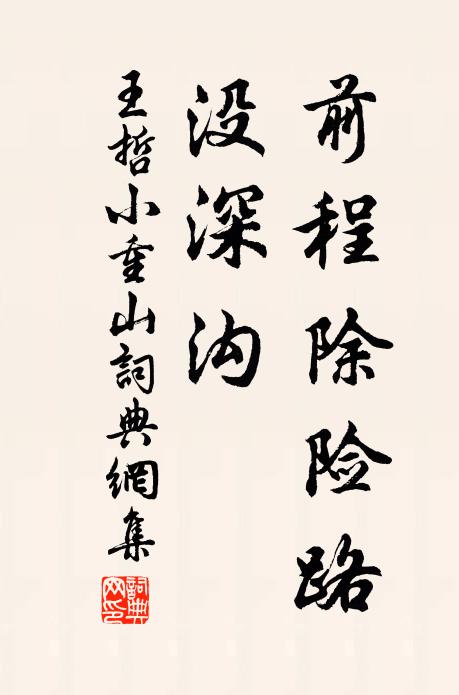 前程除险路
没深沟
王哲小重山詞典網集
詞典
网印